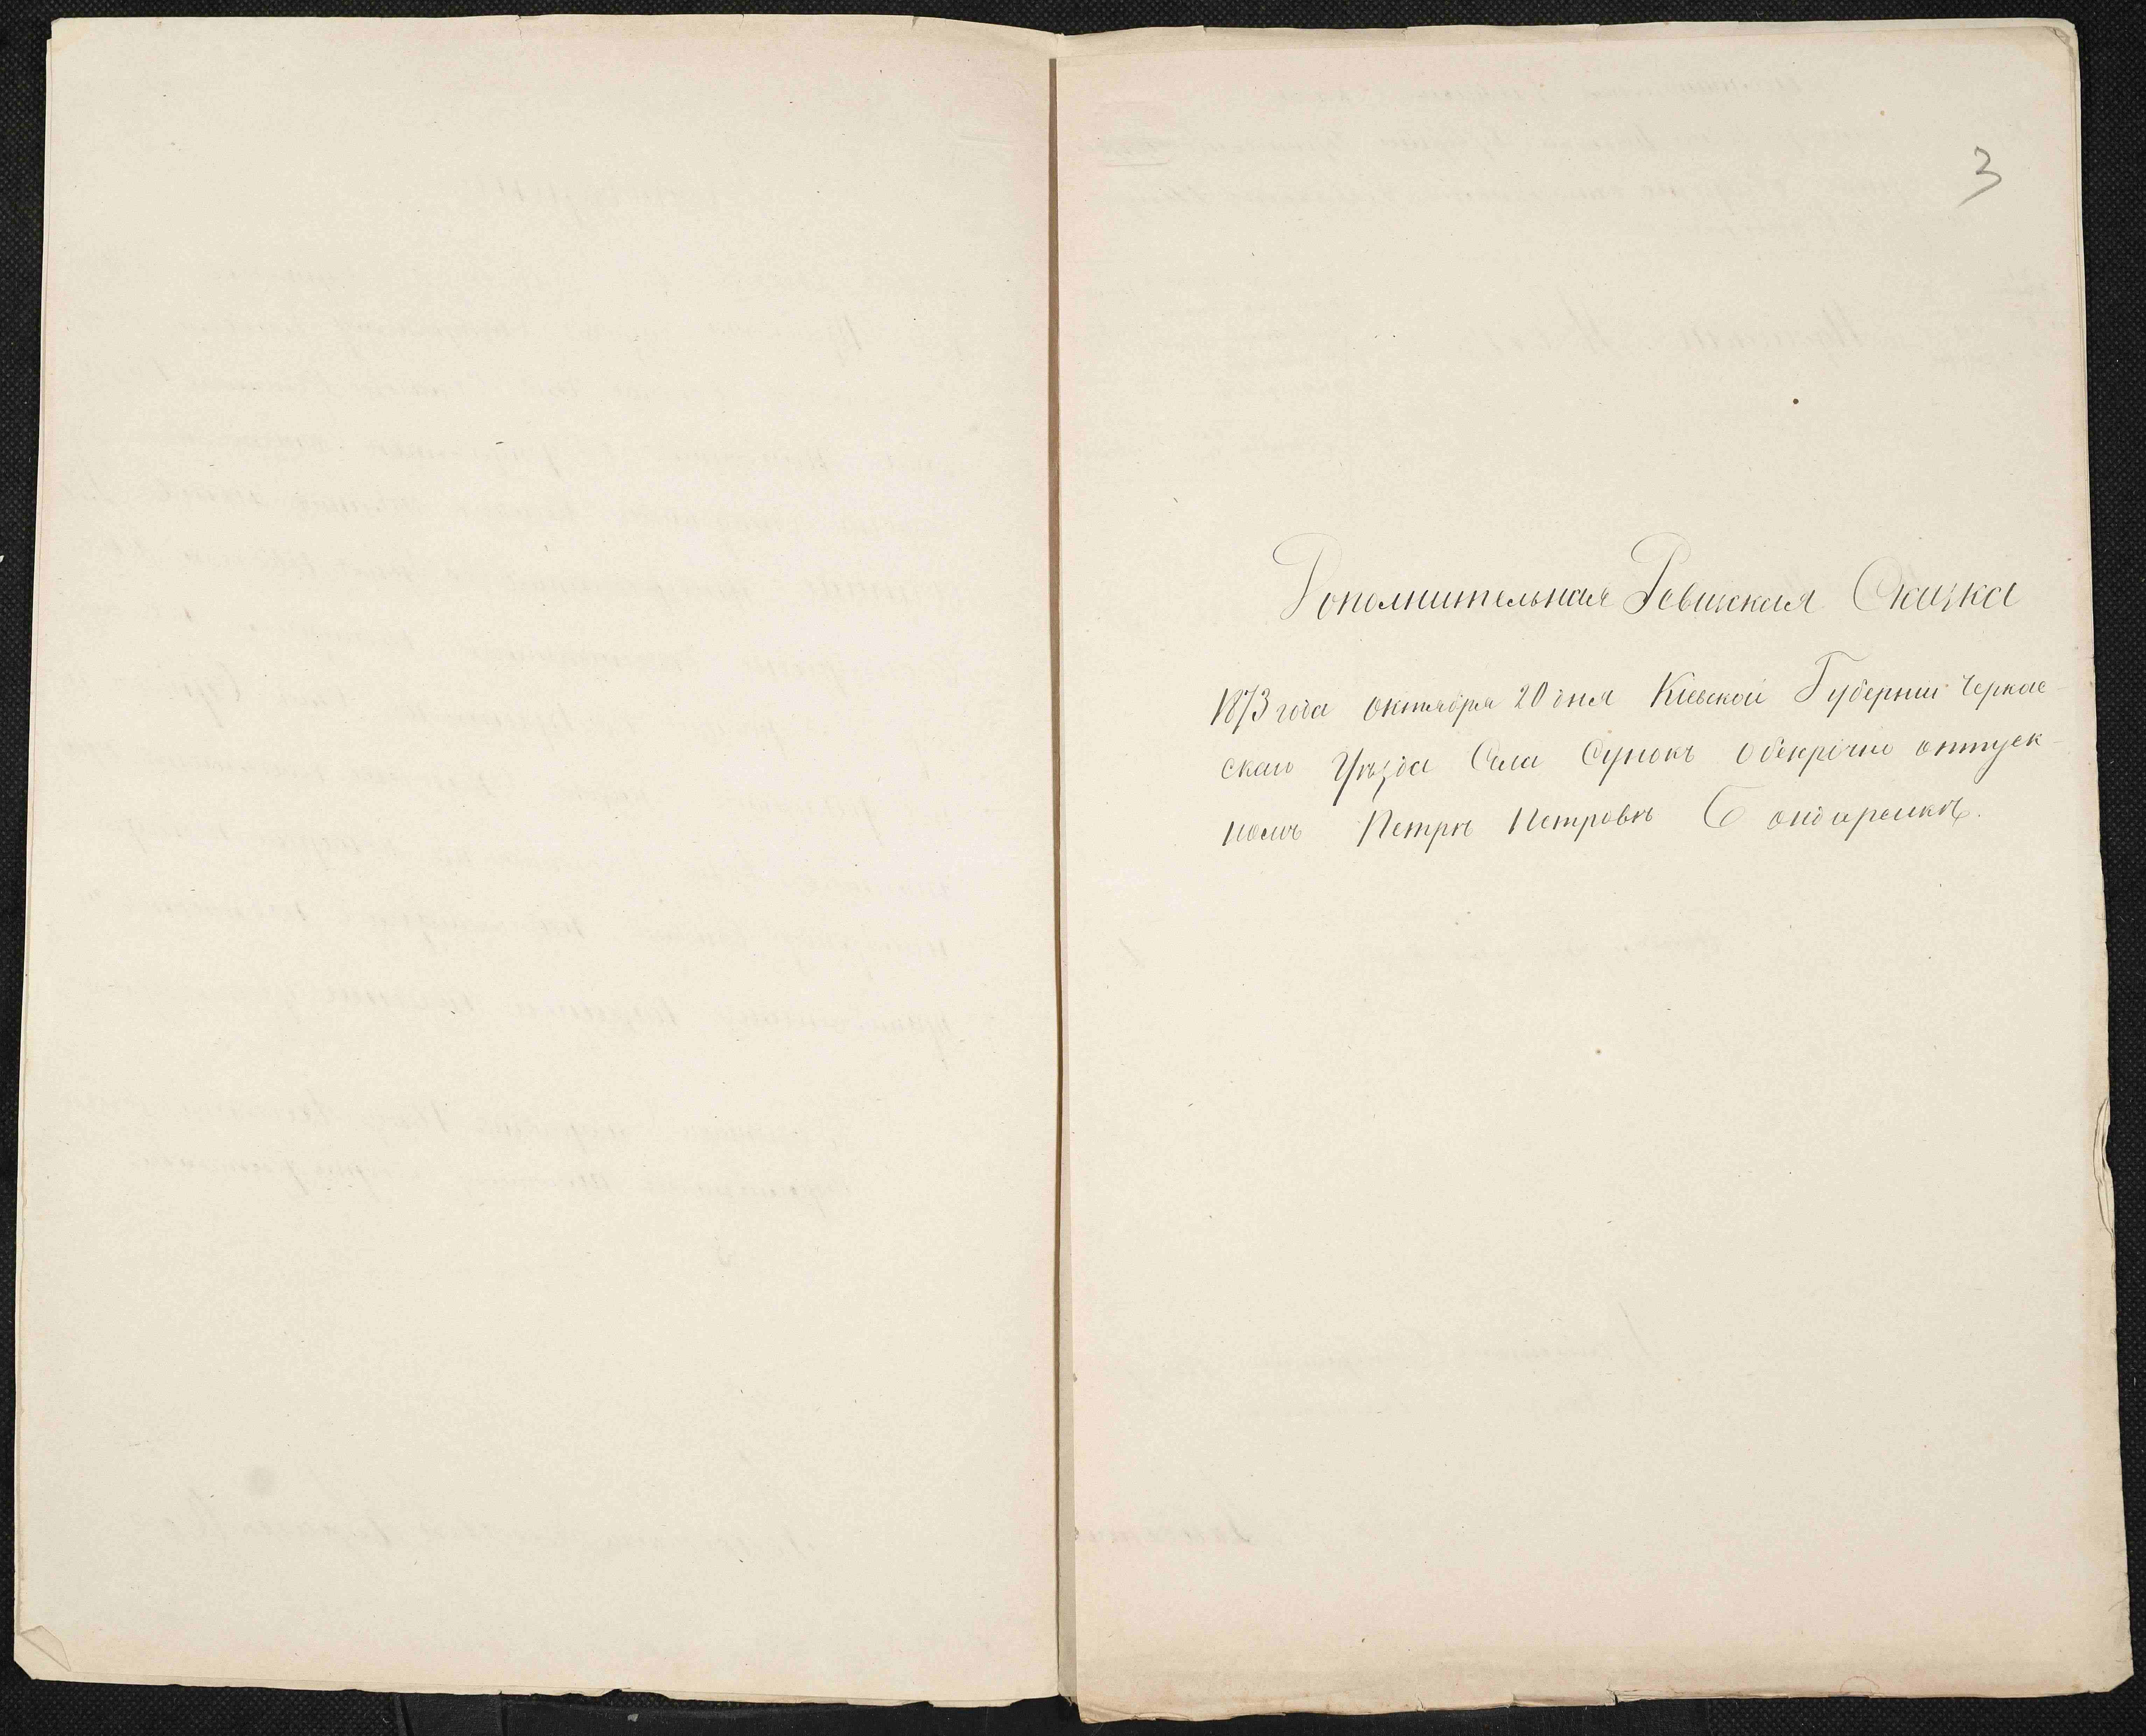 3
Дополнительная Ревиская Сказка
1873 года октября 20 дня Кіевской Губерніи Черкас-
скаго Уѣзда Села Сунокъ о безсрочно отпуск-
номъ Петрѣ Петровѣ Бондаренкѣ.